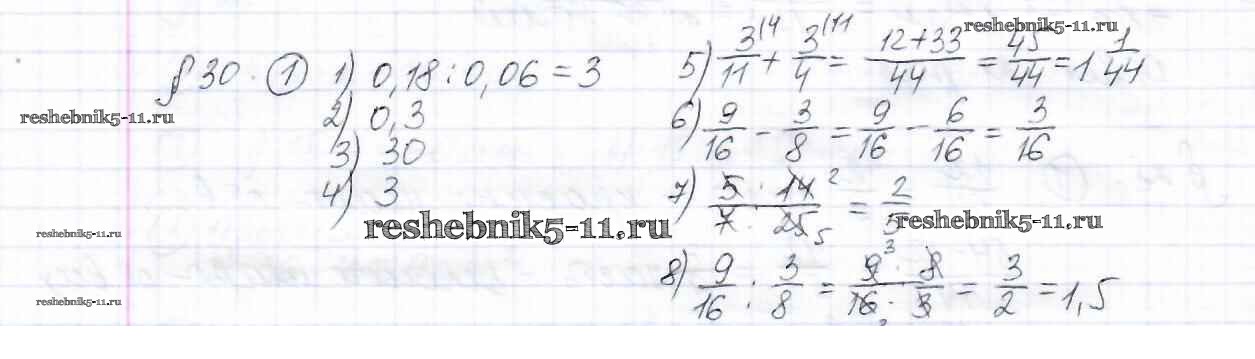 § 30. ① 1) 0,18 : 0,06 = 3
2) 0,3
3) 30
4) 3
5) 3/11 \4 + 3/4 \11 = (12+33)/44 = 45/44 = 1 1/44
6) 9/16 - 3/8 = 9/16 - 6/16 = 3/16
7) (5 · 14 2)/(7 · 25 5) = 2/5
8) 9/16 : 3/8 = (9 3 · 8)/(16 2 · 3) = 3/2 = 1,5
reshebnik5-11.ru
reshebnik5-11.ru
reshebnik5-11.ru
reshebnik5-11.ru
reshebnik5-11.ru
reshebnik5-11.ru